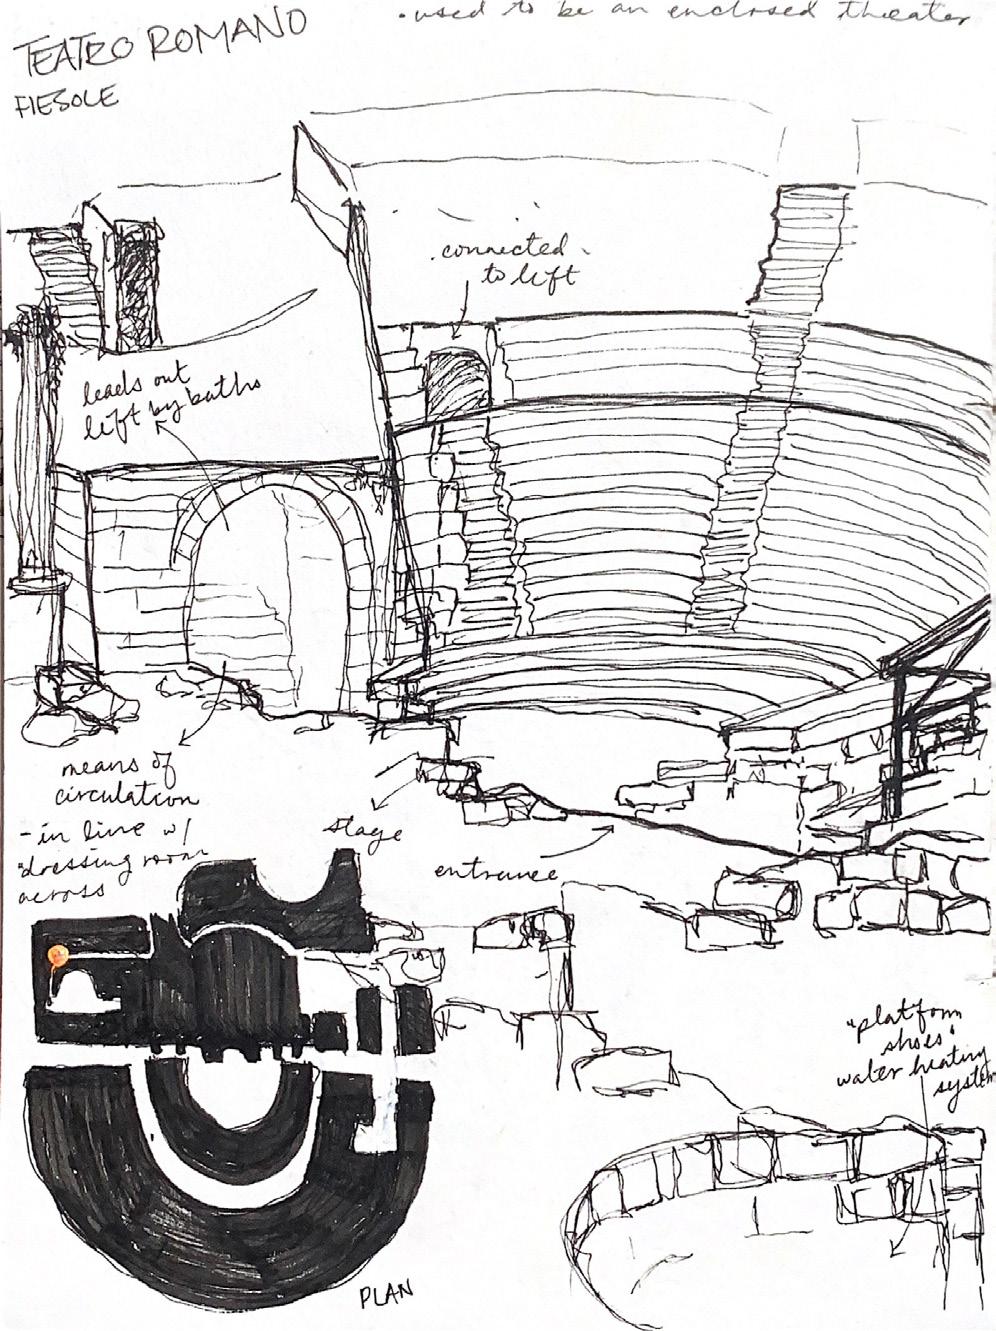 • used to be an enclosed theater
TEATRO ROMANO
FIESOLE
connected
to left
leads out
left by baths
means of
circulation
- in line w/
"dressing room
across
stage
entrance
"platform
shoes"
water heating
system
PLAN